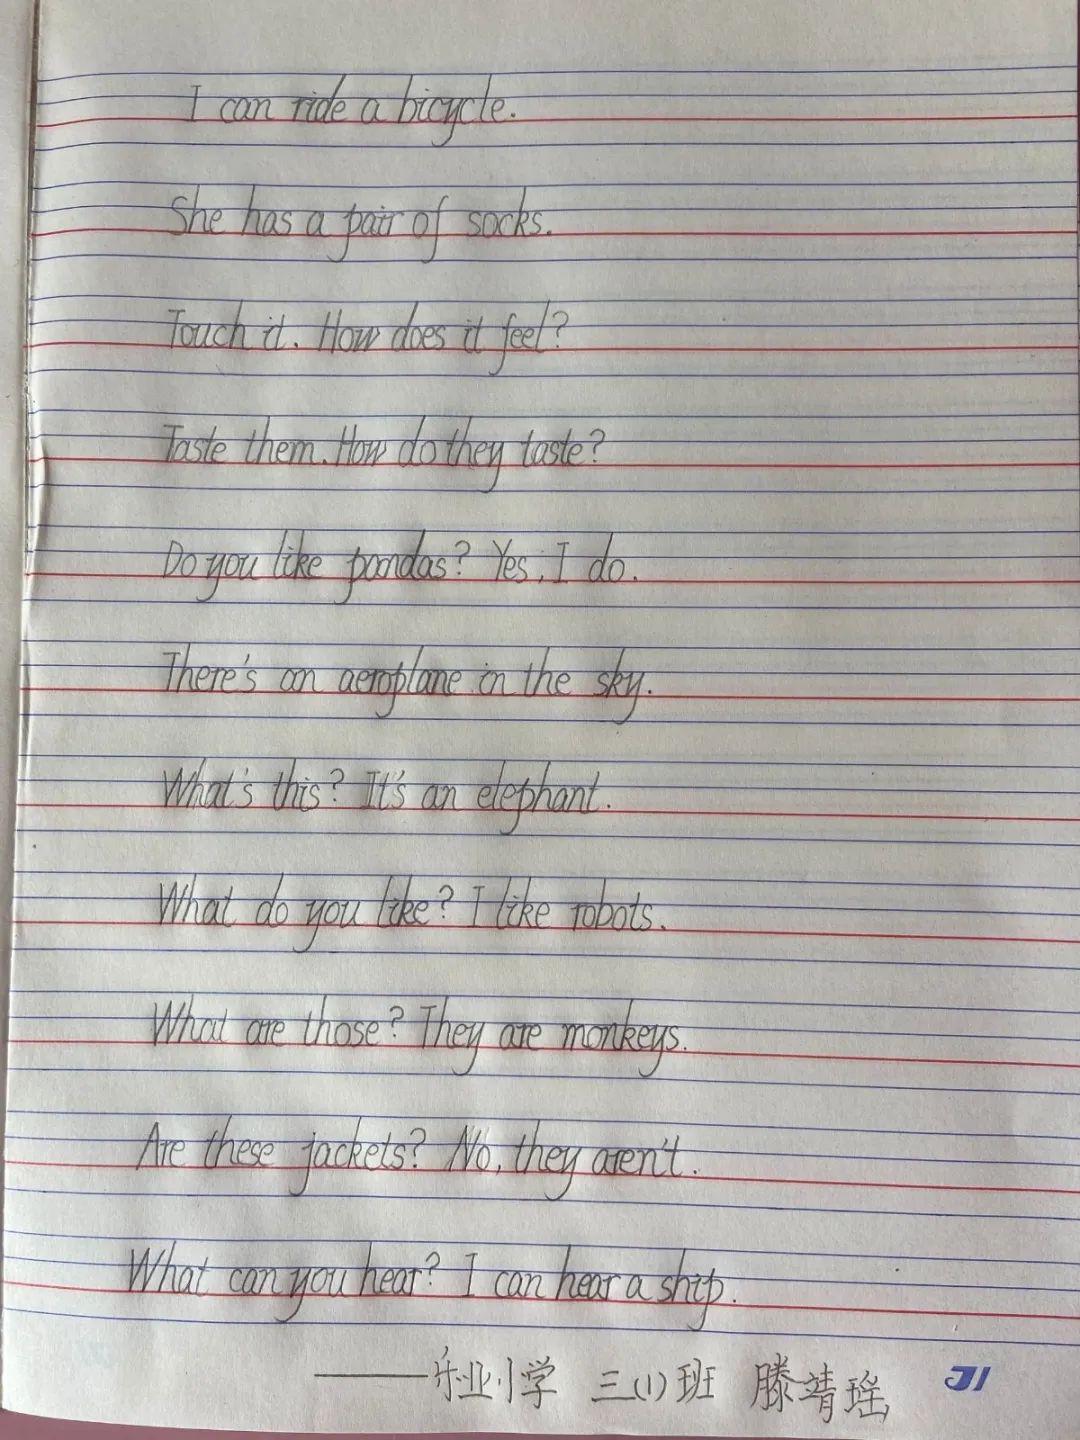 I can ride a bicycle.
She has a pair of socks.
Touch it. How does it feel?
Taste them. How do they taste?
Do you like pandas? Yes, I do.
There's an aeroplane in the sky.
What's this? It's an elephant.
What do you like? I like robots.
What are those? They are monkeys.
Are these jackets? No, they aren't.
What can you hear? I can hear a ship.
——乐业小学 三(1)班 滕靖瑶